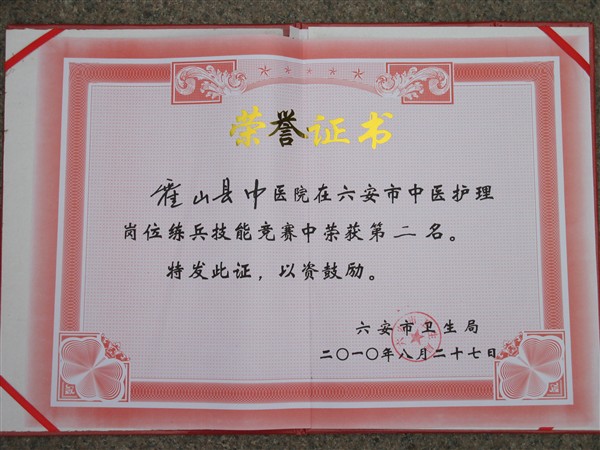 荣誉证书
霍山县中医院在六安市中医护理
岗位练兵技能竞赛中荣获第二名。
特发此证，以资鼓励。
六安市卫生局
二〇一〇年八月二十七日